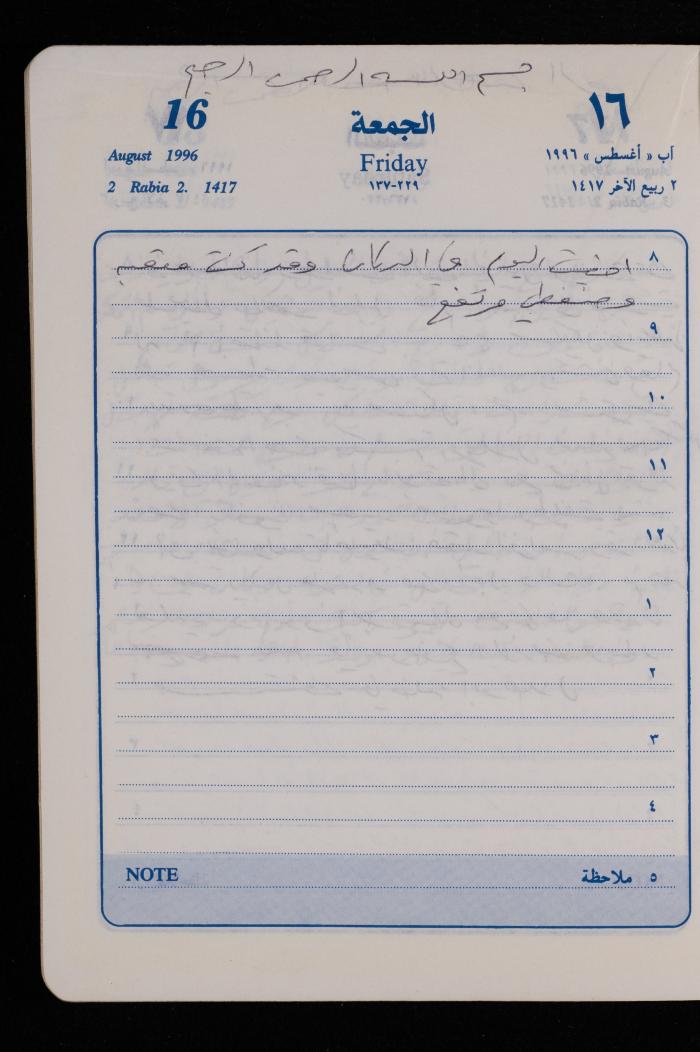 بسم الله الرحمن الرحيم
16 الجمعة ١٦
August 1996 Friday آب « أغسطس » ١٩٩٦
2 Rabia 2. 1417 ١٣٧-٢٢٩ ٢ ربيع الآخر ١٤١٧
٨ امضيت اليوم في الدكان وقد كنت متعب
وضغطي مرتفع
٩
١٠
١١
١٢
١
٢
٣
٤
NOTE ٥ ملاحظة